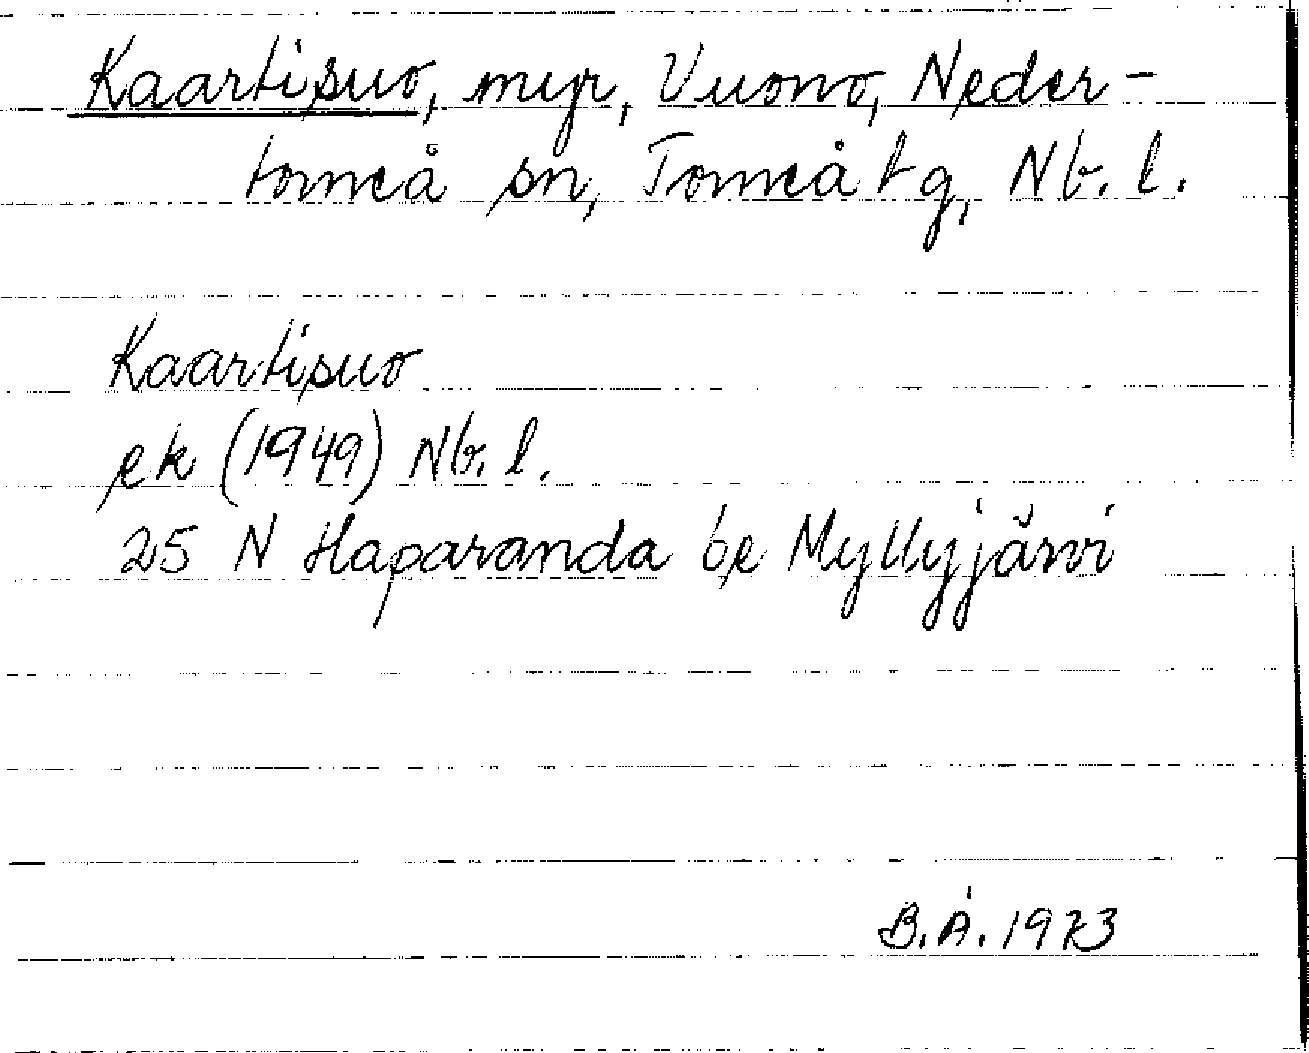 Kaartisuo, myr, Vuono, Neder-
torneå sn, Torneå tg, Nb. l.
Kaartisuo
ek (1949) Nb. l.
25 N Haparanda be Myllyjärvi
B.Å. 1973